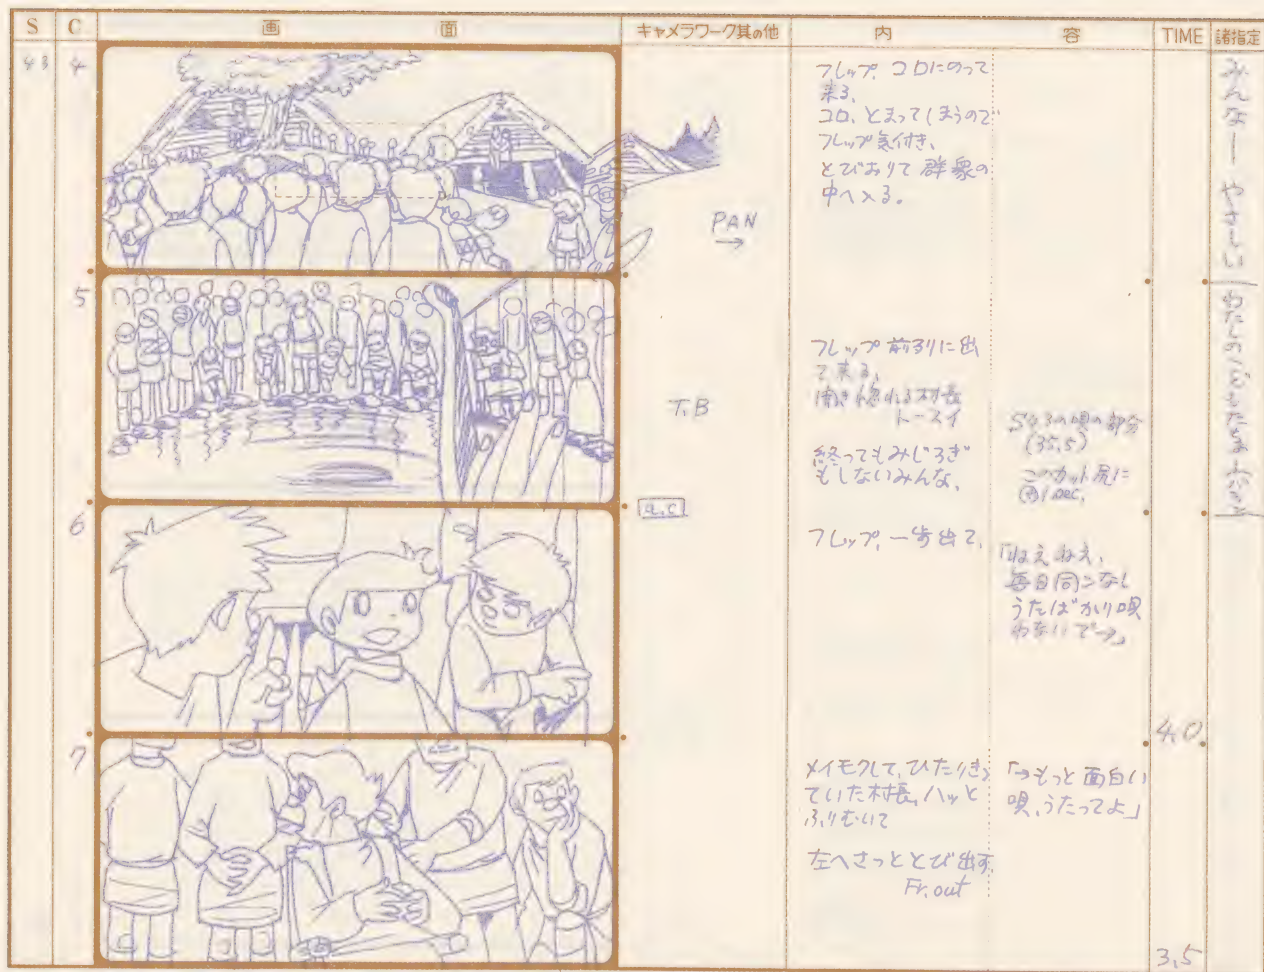 S C 画 面 キャメラワーク其の他 内 容 TIME 諸指定
43 4
フレップ、コロにのって
来る、
コロ、とまってしまうので
フレップ気付き、
とびおりて群衆の
中へ入る。
PAN
→
みんなー やさしい
5
フレップ前列に出
て来る、
聞き惚れる村長
トースイ
終ってもみじろぎ
もしないみんな、
T.B
S43の唄の部分
(35.5)
このカット尻に
1 sec.
6
フレップ、一歩出て、
「ねえねえ、
毎日同ンなし
うたばかり唄
わないで→」
4.0
7
メイモクして、ひたりきっ
ていた村長、ハッと
ふりむいて
左へさっととび出す、
Fr. out
「→もっと面白い
唄、うたってよ」
3.5